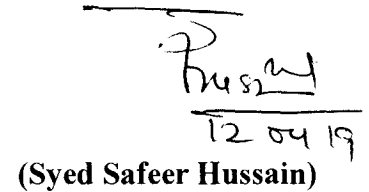 12 04 19
(Syed Safeer Hussain)